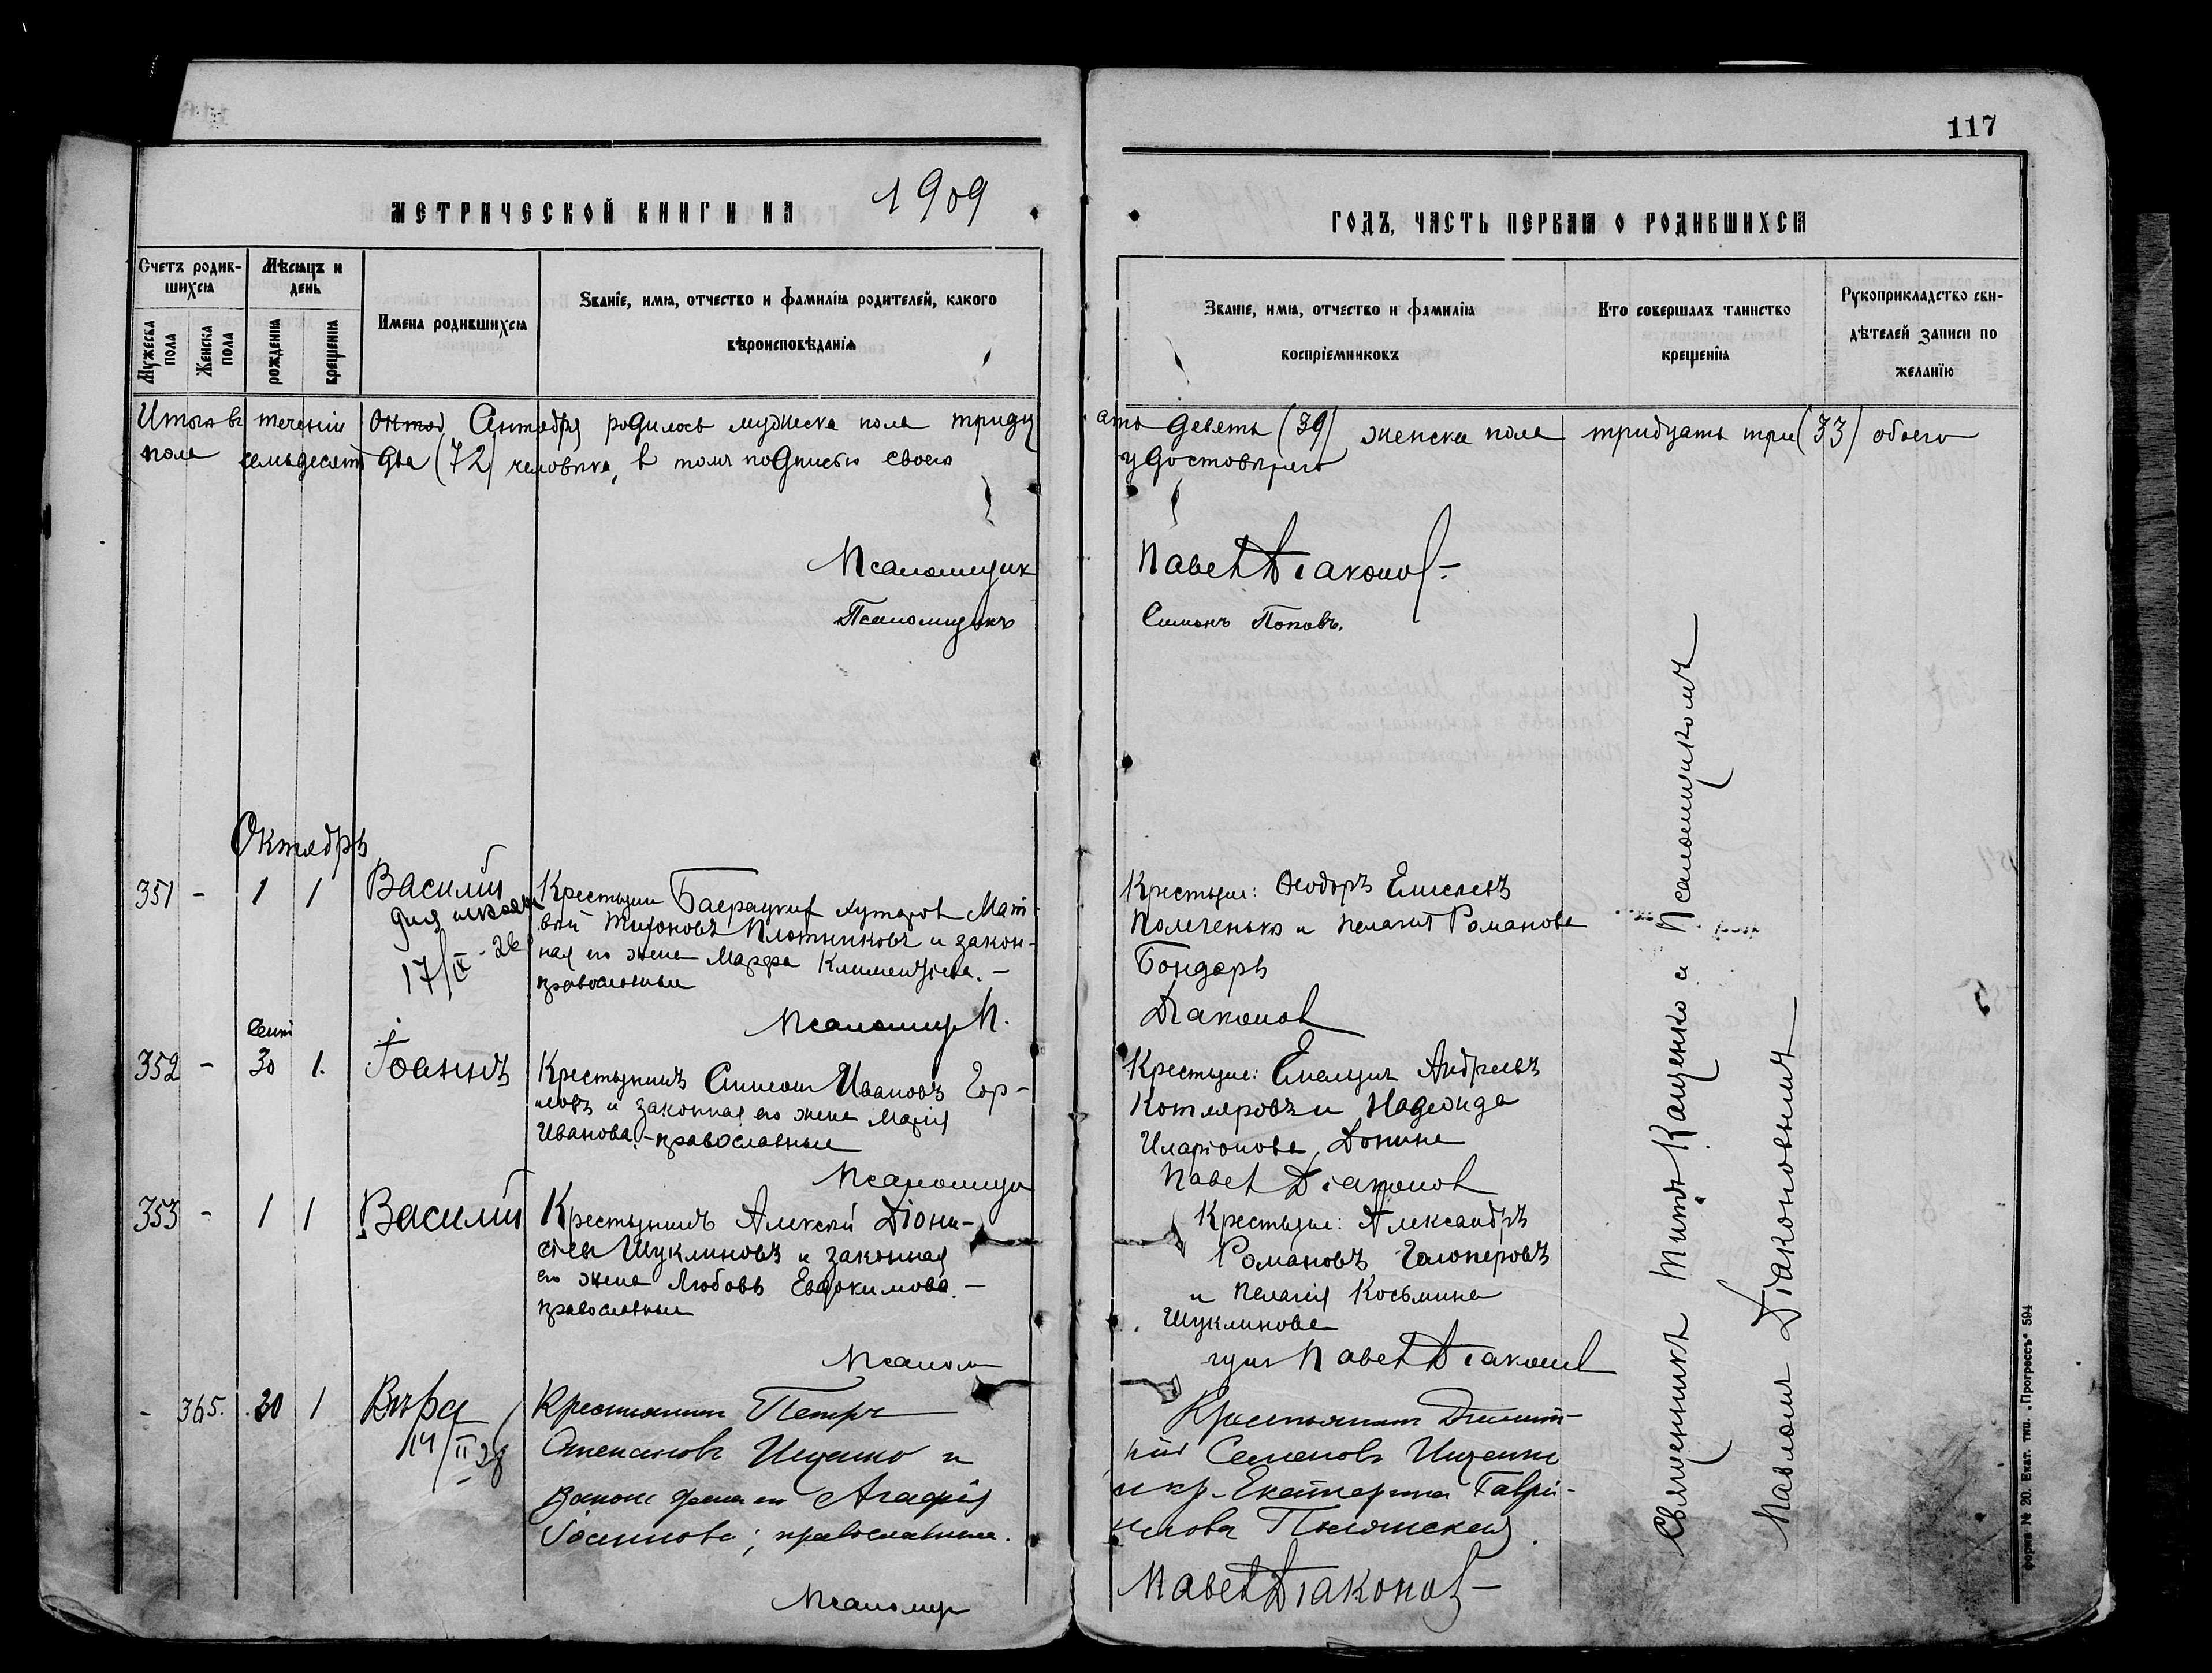 117
МЕТРИЧЕСКОЙ КНИГИ НА 1909
ГОДЪ, ЧАСТЬ ПЕРВАЯ О РОДИВШИХСЯ
Счетъ родив-
шихся
Мужеска пола
Женска пола
Мѣсяцъ и
день
рожденія
крещенія
Имена родившихся
Званіе, имя, отчество и фамилія родителей, какого
вѣроисповѣданія
Званіе, имя, отчество и фамилія
воспріемниковъ
Кто совершалъ таинство
крещенія
Рукоприкладство сви-
дѣтелей записи по
желанію
Итого въ теченіи Сентября родилось мужеска пола тридц
ать девять (39) женска пола тридцать три (33) обоего
пола семьдесятъ два (72) человѣка, в томъ подписью своею
удостовѣряю
Псаломщик Павел Діаконов
Псаломщикъ Симонъ Поповъ.
Октябрь
351 - 1 1 Василій
17/IX - 26
Крестьянин хуторов Мат-
вѣй Тихоновъ Плотниковъ и закон-
ная его жена Марфа Климентьева. -
православные
Псаломщ П.
Крестьяне: Ѳеодоръ Елисеевъ
и Пелагія Романова
Бондарь
Діаконов
352 - Сент 30 1. Іоаннъ
Крестьянинъ Симеон Ивановъ Гор-
ловъ и законная его жена Марія
Иванова, - православные
Псаломщи
Крестьяне: Емельян Андреевъ
Котляровъ и Надежда
Иларіонова Донина
Павел Діаконов
353 - 1 1 Василій
Крестьянинъ Алексѣй Діони-
сіевъ Шуклиновъ и законная
его жена Любовь Евдокимова. -
православные
Псалом
Крестьяне: Александръ
Романовъ Галоперовъ
и Пелагія Косьмина
Шуклинова
щик Павел Діаконов
- 365. 30 1 Вѣра
14/II 28
Крестьянин Петръ
Степановъ Ищенко и
закон жена его Агафія
Іоаннова; православные.
Псаломщ
Крестьянин Димит-
рій Семеновъ Ищенко
и кр. Екатерина Гаврі-
илова
Павел Діаконов
Священникъ Титъ Кащенко и Псаломщикомъ
Павломъ Діаконовымъ
форма № 20. Екат. тип. „Прогрессъ" 594